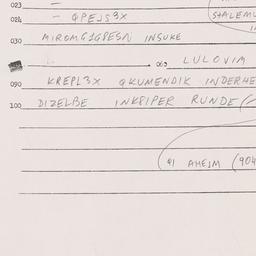 023 —
024 — QPEJS3X STALEMU
030 MIROMG1GPESN INSUKE
060 LULOVIM
090 KREPL3X QKUMENDIK INDERHE
100 DIZELBE INKPIPER RUNDE (
41 AHEJM (904